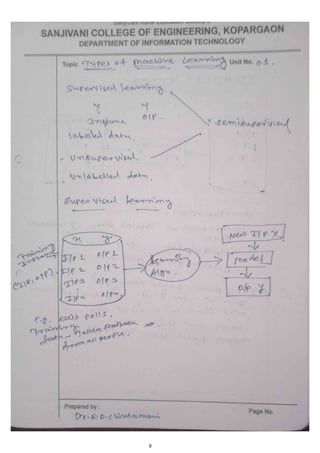 SANJIVANI COLLEGE OF ENGINEERING, KOPARGAON
DEPARTMENT OF INFORMATION TECHNOLOGY
Topic Types of machine Learning Unit No. 01.
Supervised learning.
x y
o/p.
labeled data.
semisupervised
- Unsupervised.
Unlabelled data.
Supervised learning
x y
Training
(I/p, o/p)
I/p 1 o/p 1
I/p 2 o/p 2
I/p 3 o/p 3
I/pn o/pn
Learning
Algo.
New I/p x
model
o/p y
e.g. exit polls.
Training
data - Taken feedback
from all people.
Prepared by :
Page No.
9